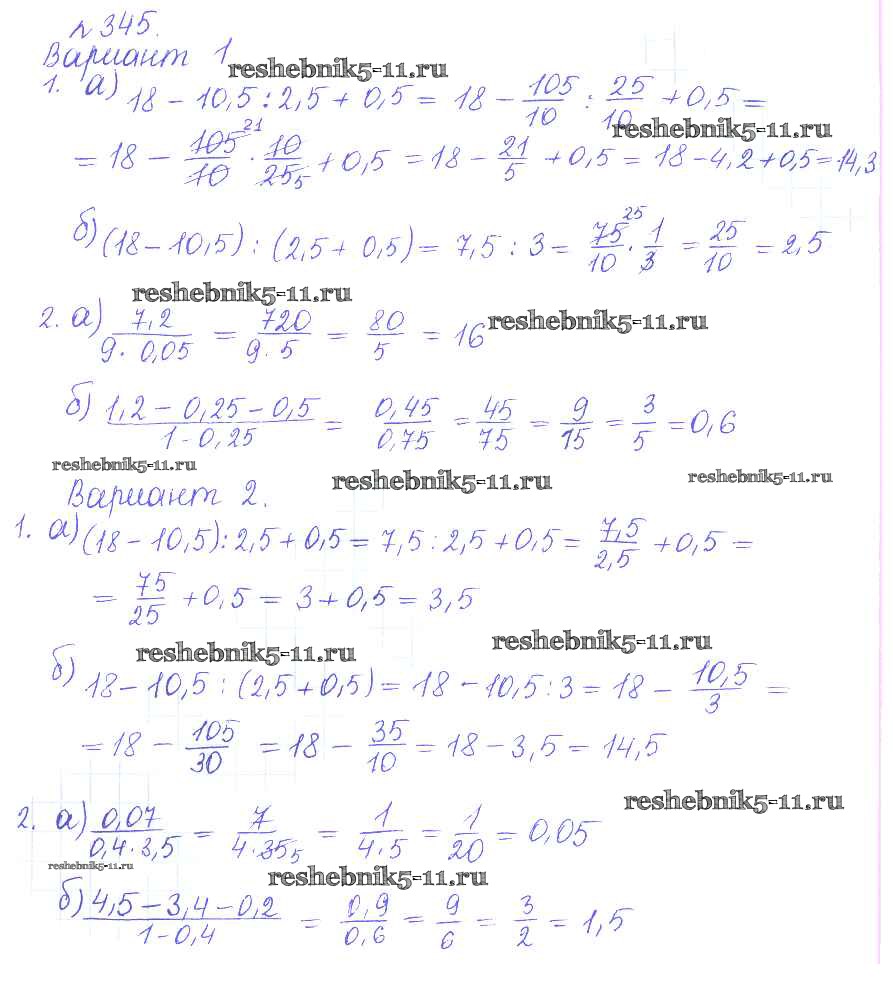 № 345.
Вариант 1
reshebnik5-11.ru
1. а) 18 - 10,5 : 2,5 + 0,5 = 18 - 105/10 : 25/10 + 0,5 =
reshebnik5-11.ru
= 18 - 105 21/10 · 10/25 5 + 0,5 = 18 - 21/5 + 0,5 = 18 - 4,2 + 0,5 = 14,3
б) (18 - 10,5) : (2,5 + 0,5) = 7,5 : 3 = 75 25/10 · 1/3 = 25/10 = 2,5
reshebnik5-11.ru
2. а) 7,2/9 · 0,05 = 720/9 · 5 = 80/5 = 16
reshebnik5-11.ru
б) 1,2 - 0,25 - 0,5/1 - 0,25 = 0,45/0,75 = 45/75 = 9/15 = 3/5 = 0,6
reshebnik5-11.ru
reshebnik5-11.ru
reshebnik5-11.ru
Вариант 2.
1. а) (18 - 10,5) : 2,5 + 0,5 = 7,5 : 2,5 + 0,5 = 7,5/2,5 + 0,5 =
= 75/25 + 0,5 = 3 + 0,5 = 3,5
reshebnik5-11.ru
reshebnik5-11.ru
б) 18 - 10,5 : (2,5 + 0,5) = 18 - 10,5 : 3 = 18 - 10,5/3 =
= 18 - 105/30 = 18 - 35/10 = 18 - 3,5 = 14,5
reshebnik5-11.ru
2. а) 0,07/0,4 · 3,5 = 7/4 · 35 5 = 1/4 · 5 = 1/20 = 0,05
reshebnik5-11.ru
reshebnik5-11.ru
б) 4,5 - 3,4 - 0,2/1 - 0,4 = 0,9/0,6 = 9/6 = 3/2 = 1,5